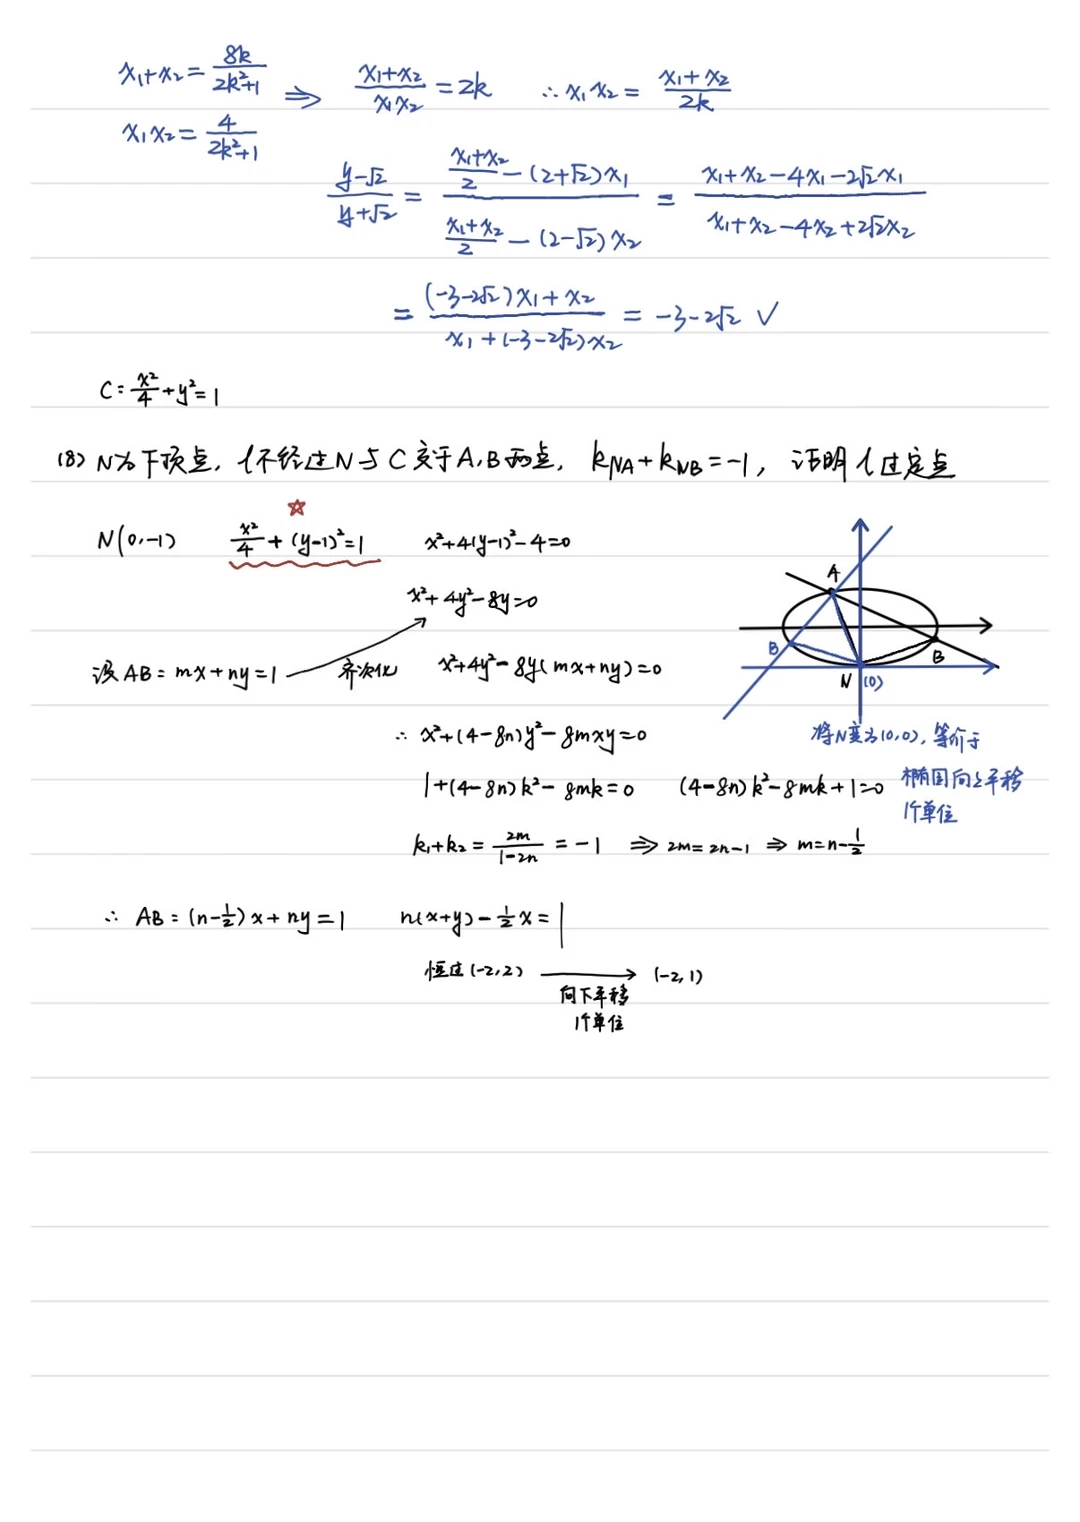 x₁+x₂ = 8k/(2k²+1) ⇒ (x₁+x₂)/(x₁x₂) = 2k ∴ x₁x₂ = (x₁+x₂)/2k
x₁x₂ = 4/(2k²+1)
(y-√2)/(y+√2) = ((x₁+x₂)/2 - (2+√2)x₁)/((x₁+x₂)/2 - (2-√2)x₂) = (x₁+x₂-4x₁-2√2x₁)/(x₁+x₂-4x₂+2√2x₂)
= ((-3-2√2)x₁+x₂)/(x₁+(-3-2√2)x₂) = -3-2√2 ✓
C: x²/4+y²=1
(8) N为下顶点, l不经过N与C交于A,B两点, k_NA+k_NB=-1, 证明l过定点
☆
N(0,-1) x²/4+(y-1)²=1 x²+4(y-1)²-4=0
x²+4y²-8y=0
设AB: mx+ny=1 齐次化 x²+4y²-8y(mx+ny)=0
∴ x²+(4-8n)y²-8mxy=0
1+(4-8n)k²-8mk=0 (4-8n)k²-8mk+1=0
k₁+k₂ = 2m/(1-2n) = -1 ⇒ 2m=2n-1 ⇒ m=n-1/2
∴ AB: (n-1/2)x+ny=1 n(x+y)-1/2x=1
恒过(-2,2) → (-2,1)
向下平移
1个单位
A
B
B
N (0)
将N变为(0,0), 等价于
椭圆向上平移
1个单位